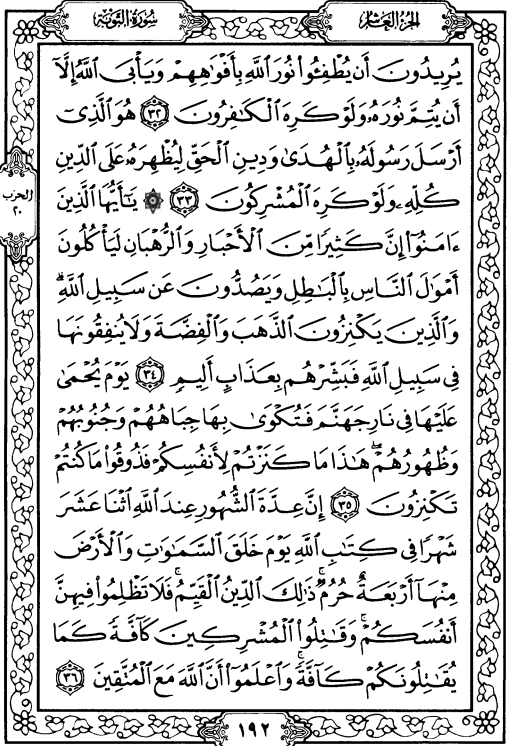 سُورَةُ التَّوْبَةِ
الجُزْءُ العَاشِرُ
يُرِيدُونَ أَن يُطْفِـُٔوا۟ نُورَ ٱللَّهِ بِأَفْوَٰهِهِمْ وَيَأْبَى ٱللَّهُ إِلَّآ
أَن يُتِمَّ نُورَهُۥ وَلَوْ كَرِهَ ٱلْكَـٰفِرُونَ ٣٢ هُوَ ٱلَّذِىٓ
أَرْسَلَ رَسُولَهُۥ بِٱلْهُدَىٰ وَدِينِ ٱلْحَقِّ لِيُظْهِرَهُۥ عَلَى ٱلدِّينِ
كُلِّهِۦ وَلَوْ كَرِهَ ٱلْمُشْرِكُونَ ٣٣ ۞ يَـٰٓأَيُّهَا ٱلَّذِينَ
الحزب
٢٠
ءَامَنُوٓا۟ إِنَّ كَثِيرًا مِّنَ ٱلْأَحْبَارِ وَٱلرُّهْبَانِ لَيَأْكُلُونَ
أَمْوَٰلَ ٱلنَّاسِ بِٱلْبَـٰطِلِ وَيَصُدُّونَ عَن سَبِيلِ ٱللَّهِ ۗ
وَٱلَّذِينَ يَكْنِزُونَ ٱلذَّهَبَ وَٱلْفِضَّةَ وَلَا يُنفِقُونَهَا
فِى سَبِيلِ ٱللَّهِ فَبَشِّرْهُم بِعَذَابٍ أَلِيمٍ ٣٤ يَوْمَ يُحْمَىٰ
عَلَيْهَا فِى نَارِ جَهَنَّمَ فَتُكْوَىٰ بِهَا جِبَاهُهُمْ وَجُنُوبُهُمْ
وَظُهُورُهُمْ ۖ هَـٰذَا مَا كَنَزْتُمْ لِأَنفُسِكُمْ فَذُوقُوا۟ مَا كُنتُمْ
تَكْنِزُونَ ٣٥ إِنَّ عِدَّةَ ٱلشُّهُورِ عِندَ ٱللَّهِ ٱثْنَا عَشَرَ
شَهْرًا فِى كِتَـٰبِ ٱللَّهِ يَوْمَ خَلَقَ ٱلسَّمَـٰوَٰتِ وَٱلْأَرْضَ
مِنْهَآ أَرْبَعَةٌ حُرُمٌ ۚ ذَٰلِكَ ٱلدِّينُ ٱلْقَيِّمُ ۚ فَلَا تَظْلِمُوا۟ فِيهِنَّ
أَنفُسَكُمْ ۚ وَقَـٰتِلُوا۟ ٱلْمُشْرِكِينَ كَآفَّةً كَمَا
يُقَـٰتِلُونَكُمْ كَآفَّةً ۚ وَٱعْلَمُوٓا۟ أَنَّ ٱللَّهَ مَعَ ٱلْمُتَّقِينَ ٣٦
١٩٢